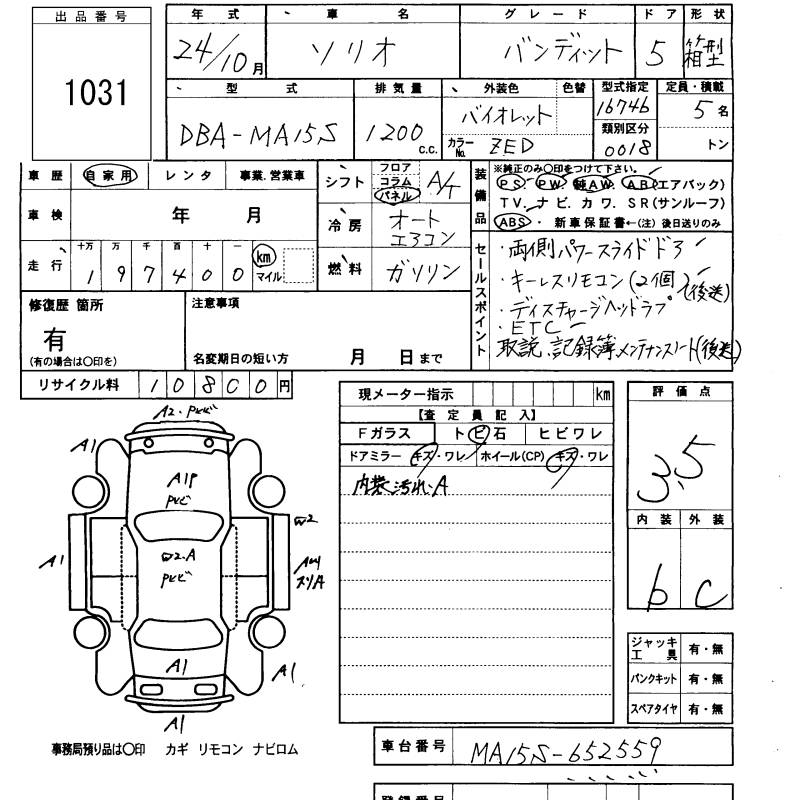 出品番号 年式 車名 グレード ドア 形状
1031 24/10月 ソリオ バンディット 5 箱型
型式 排気量 外装色 色替 型式指定 定員・積載
DBA-MA15S 1200 c.c. バイオレット 16746 5名
カラーNo. ZED 類別区分 0018 トン
車歴 自家用 レンタ 事業.営業車
シフト フロア コラム パネル A/T
装備品 ※純正のみ〇印をつけて下さい。
PS・PW.純AW.AB(エアバック)
TV.ナビ.カワ.SR(サンルーフ)
ABS・新車保証書←(注)後日送りのみ
車検 年 月
冷房 オートエアコン
走行 十万 万 千 百 十 一
197400 km マイル
燃料 ガソリン
セールスポイント
・両側パワースライドドア
・キーレスリモコン(2個)(後送)
・ディスチャージヘッドランプ
・ETC
取説、記録簿メンテナンスノート(後送)
修復歴 箇所
有
(有の場合は〇印を)
注意事項
名変期日の短い方 月 日まで
リサイクル料 10800円
現メーター指示 km
【査定員記入】
Fガラス トビ石 ヒビワレ
ドアミラー キズ・ワレ ホイール(CP) キズ・ワレ
内装汚れ、A
評価点
3.5
内装 外装
b C
ジャッキ工具 有・無
パンクキット 有・無
スペアタイヤ 有・無
A2・PHビ
A1
A1P
PHビ
W2
A1
W2.A
PHビ
スリA
A1
A1
A1
事務局預り品は〇印 カギ リモコン ナビロム
車台番号 MA15S-652559
登録番号